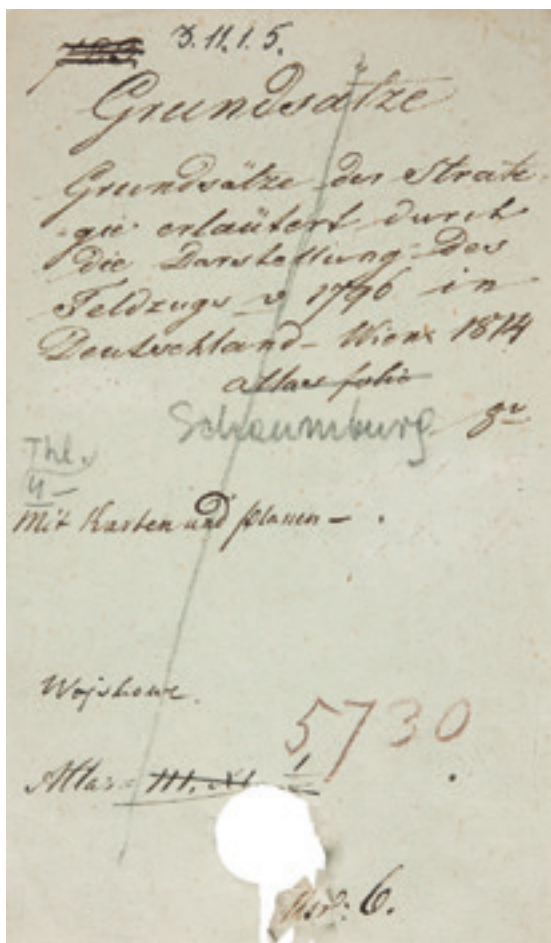 3.11.1.5.
Grundsätze
Grundsätze der Strate-
gie erläutert durch
die Darstellung des
Feldzugs v 1796 in
Deutschland – Wien 1814
atlas folio
Schaumburg 8º
Thl.
4 –
Mit Karten und Planen – .
Wojskowe.
5730
Atlas
6.